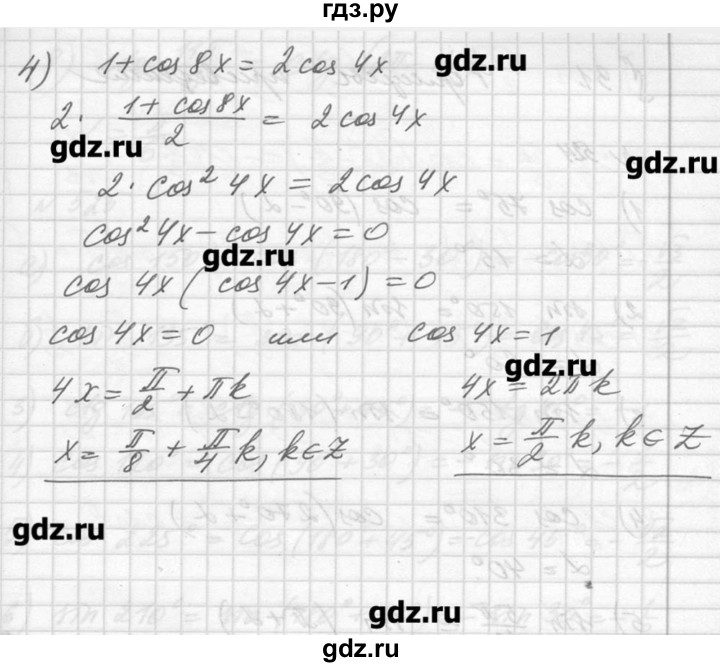 гдз.ру
4) 1 + cos 8x = 2 cos 4x gdz.ru
2 · (1 + cos 8x)/2 = 2 cos 4x
gdz.ru gdz.ru
2 · cos² 4x = 2 cos 4x
cos² 4x − cos 4x = 0
gdz.ru
cos 4x ( cos 4x − 1) = 0
cos 4x = 0 или cos 4x = 1
gdz.ru
4x = π/2 + πk 4x = 2πk
x = π/8 + π/4 k, k ∈ Z x = π/2 k, k ∈ Z
gdz.ru
gdz.ru
гдз.ру